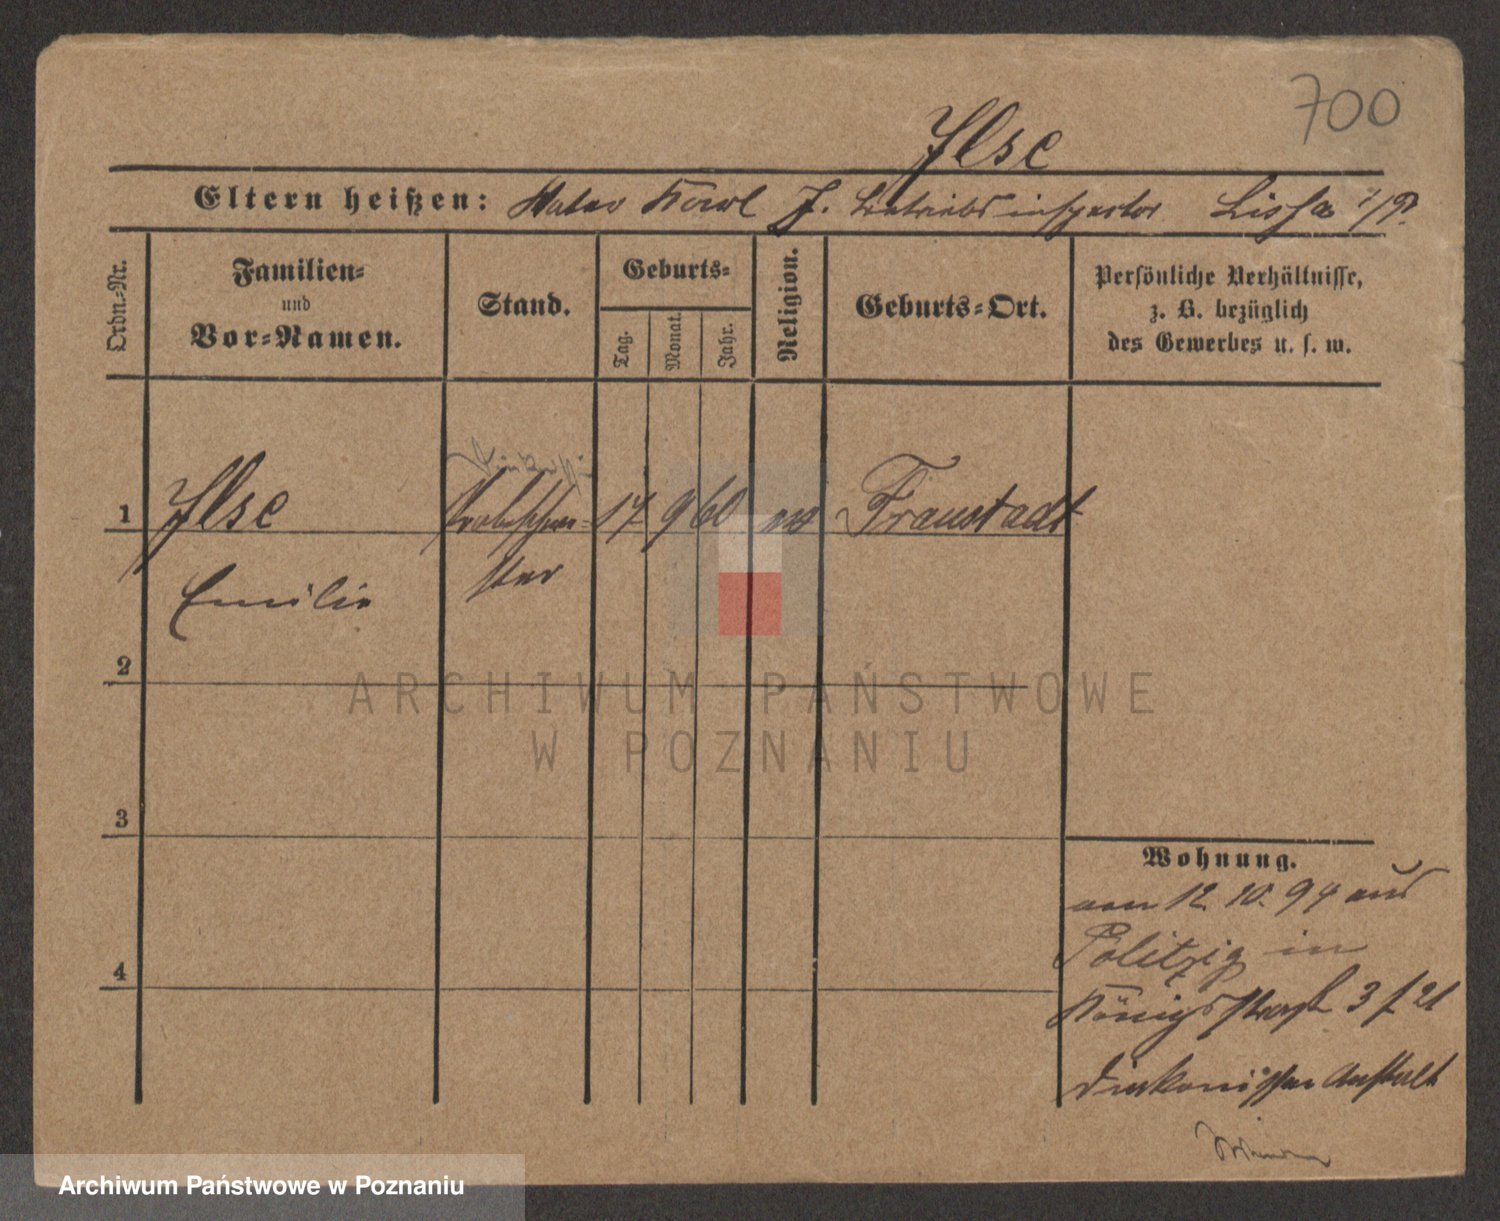 700
Ilse
Eltern heißen: Vater Karl J. Betriebsinspector Lissa i/P.
Ordn.=Nr.
Familien=
und
Vor=Namen.
Stand.
Geburts=
Tag.
Monat.
Jahr.
Religion.
Geburts=Ort.
Persönliche Verhältnisse,
z. B. bezüglich
des Gewerbes u. s. w.
1 Ilse Probeschwe= 17 9 60 ev Fraustadt
Emilie ster
2
3
4
Wohnung.
am 12. 10. 94 aus
Politzig in
Königsstraße 3 f. 21
Diakonissen Anstalt
ARCHIWUM PAŃSTWOWE
W POZNANIU
Archiwum Państwowe w Poznaniu